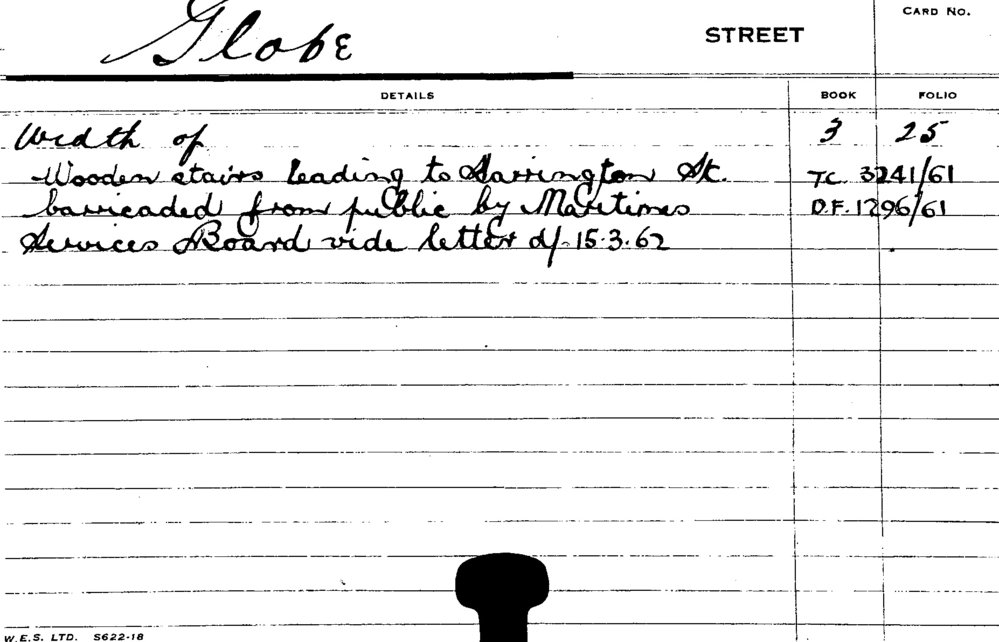 Globe STREET CARD NO.
DETAILS BOOK FOLIO
Width of 3 25
Wooden stairs leading to Harrington St. T.C. 3241/61
barricaded from public by Maritimes D.F. 1296/61
Services Board vide letter d/- 15.3.62
W.E.S. LTD. S622-18